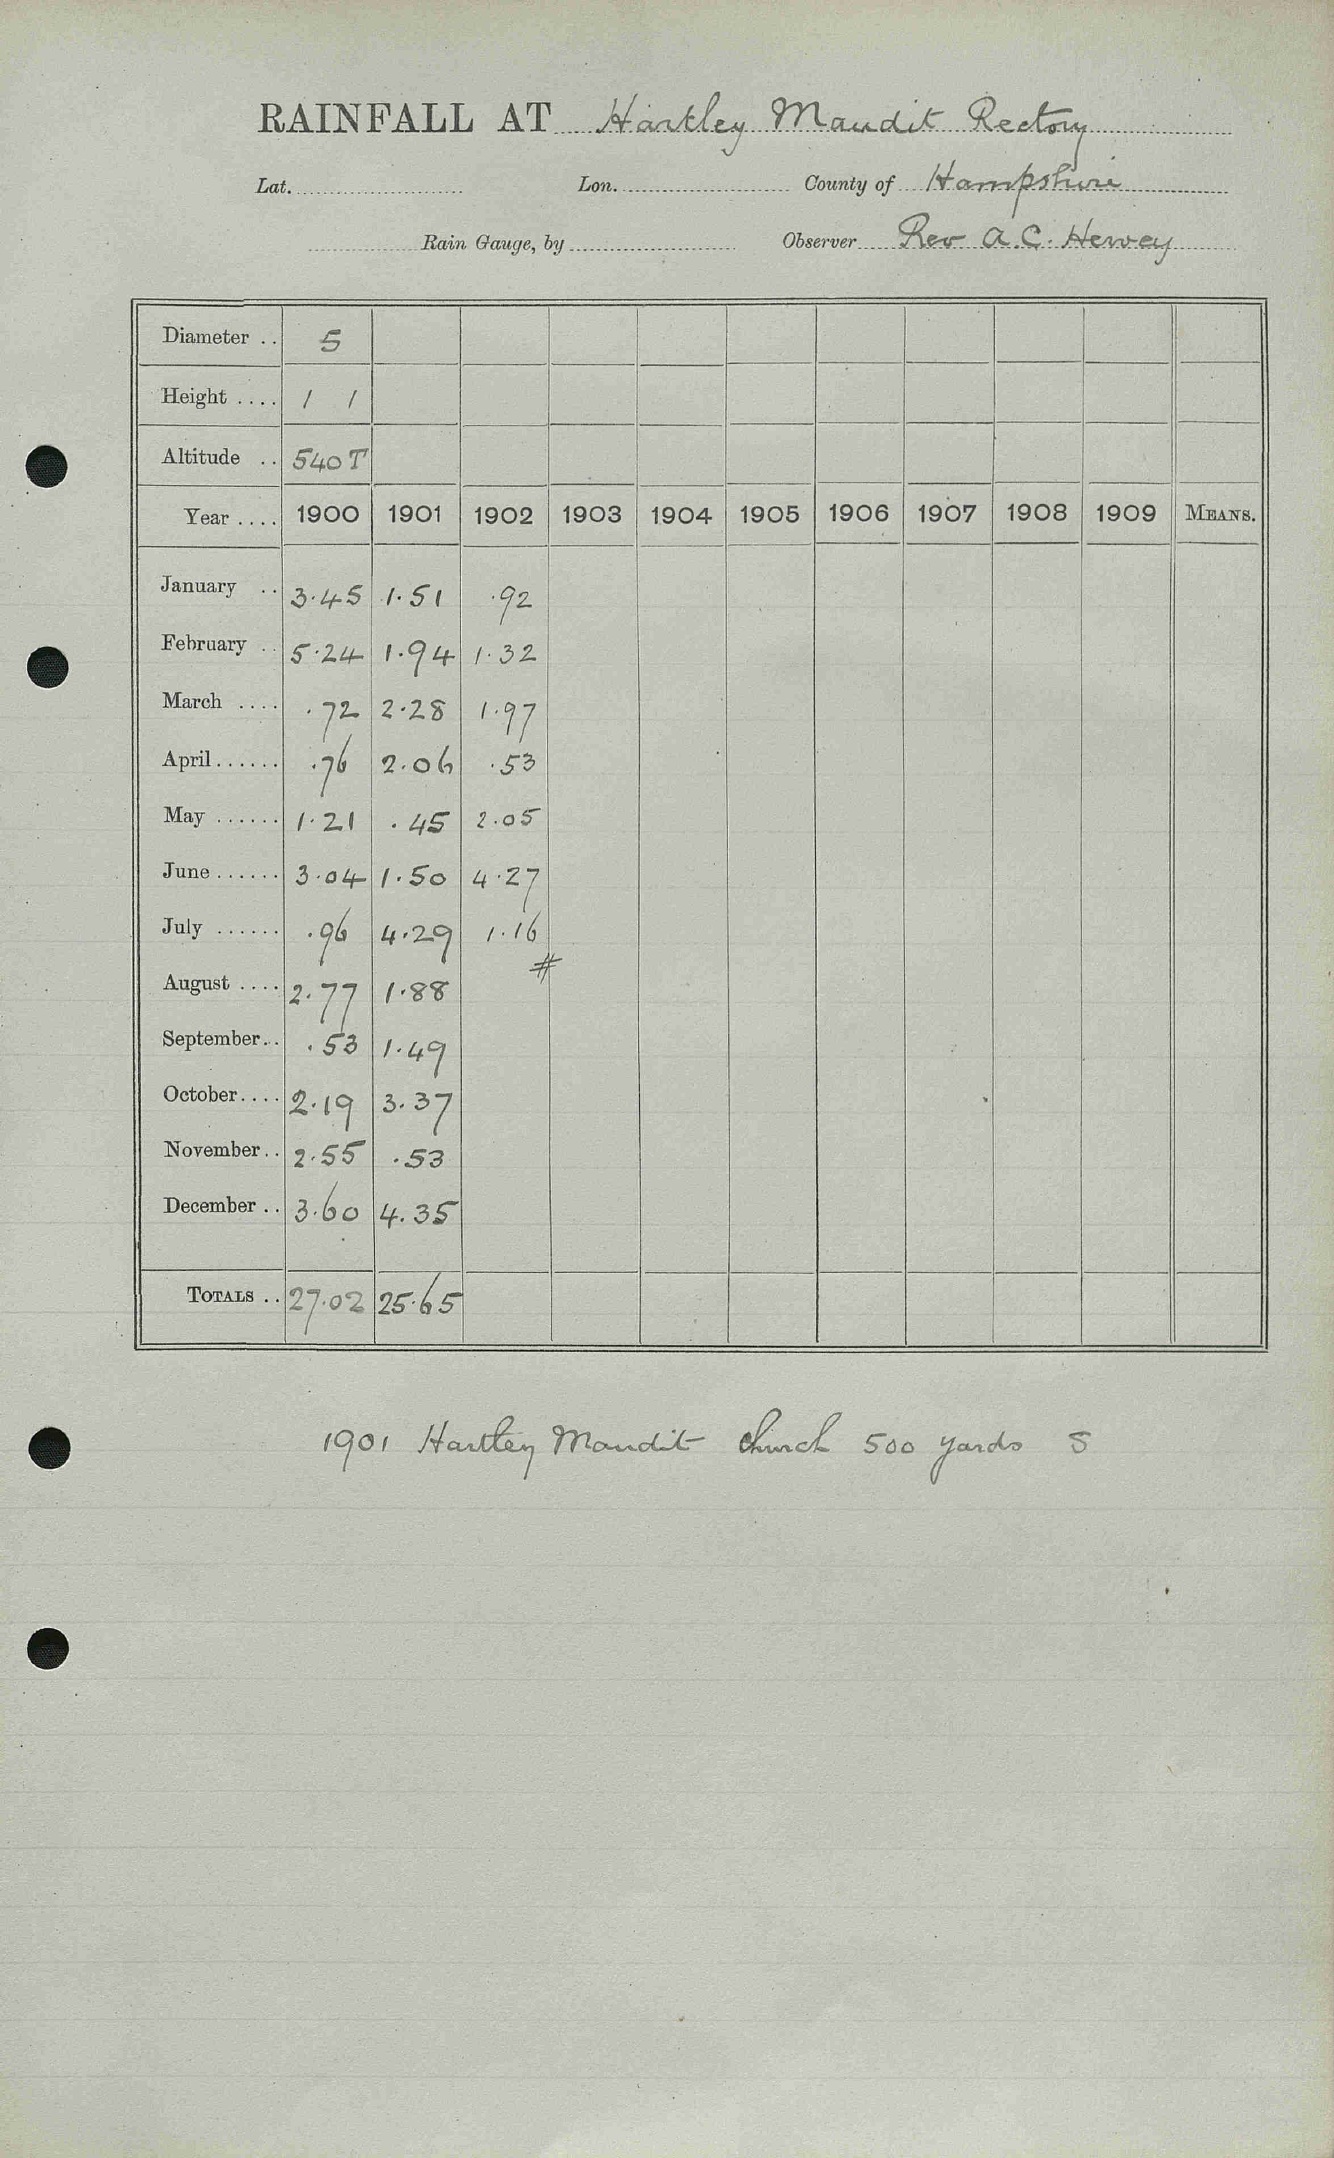 RAINFALL AT Hartley Maudit Rectory
Lat. Lon. County of Hampshire
Rain Gauge, by Observer Rev A. C. Hervey
Diameter .. 5
Height .... 1 1
Altitude .. 540 T
Year .... 1900 1901 1902 1903 1904 1905 1906 1907 1908 1909 MEANS.
January .. 3.45 1.51 .92
February .. 5.24 1.94 1.32
March .... .72 2.28 1.97
April ...... .76 2.06 .53
May ...... 1.21 .45 2.05
June ...... 3.04 1.50 4.27
July ...... .96 4.29 1.16
#
August .... 2.77 1.88
September .. .53 1.49
October .... 2.19 3.37
November .. 2.55 .53
December .. 3.60 4.35
TOTALS .. 27.02 25.65
1901 Hartley Maudit Church 500 yards S